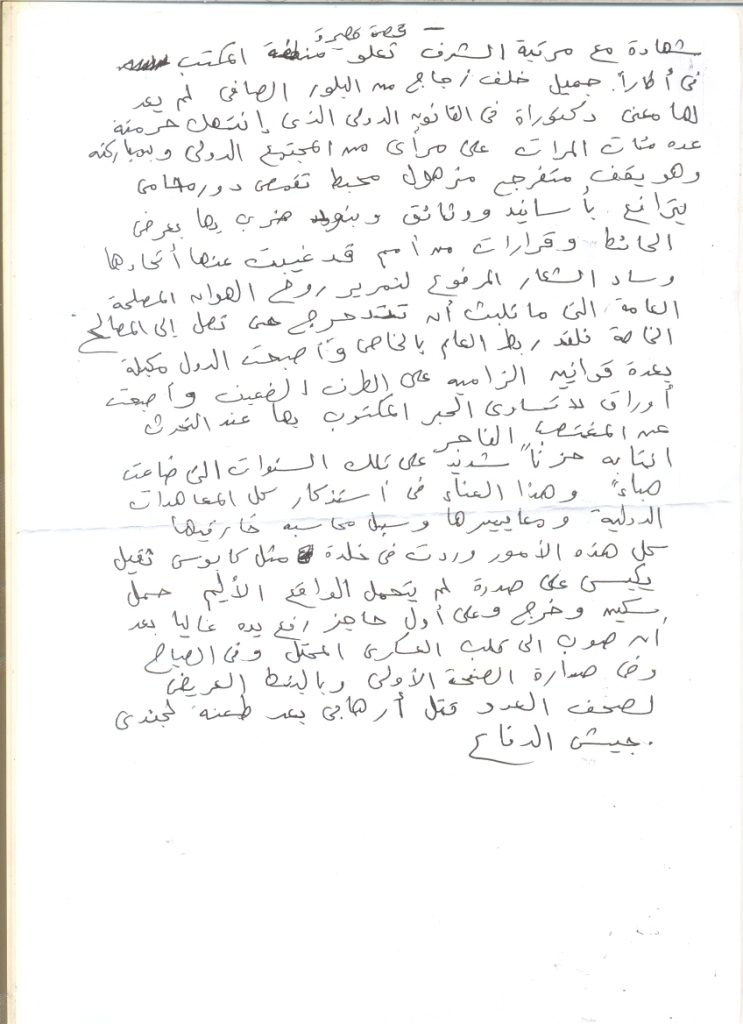 قصة قصيرة –
شهادة مع مرتبة الشرف تعلو منطقة المكتب
في اطاراً جميل خلف زجاج من البلور الصافي لم يعد
لها معنى دكتوراة في القانون الدولي الذي إنتهك حرمته
عده مئات المرات على مرأى من المجتمع الدولي وبمباركته
وهو يقف متفرجج مزهول محبط تقمص دور محامي
يترافع بأسانيد ووثائق وبنود ضرب بها بعرض
الحائط وقرارات من أمم قد غيبت عنها أتحادها
وساد الشعار المرفوع لتمرير روح الهوان المصلحة
العامة التي ما تلبث أن تتدحرج حتى تصل إلى المصالح
الخاصة فلقد ربط العام بالخاص وأصبحت الدول مكبلة
بعدة قوانين الزاميه على الطرف الضعيف وأصبحت
أوراق لا تساوى الحبر المكتوب بها عند التحدث
عن المغتصب الفاجر
انتابه حزناً شديد على تلك السنوات التى ضاعت
هباءً وهذا العناء فى أستذكار كل المعاهدات
الدولية ومعاييرها وسبل محاسبه خارقيها
كل هذه الأمور وردت فى خلدة مثل كابوس ثقيل
يكبس على صدرة لم يتحمل الواقع الأليم حمل
سكين وخرج وعلى أول حاجز رفع يده عاليا بعد
أن صوب الى قلب العسكرى المحتل وفى الصباح
وفى صدارة الصفحة الأولى وبالبنط العريض
لصحف العدو قتل أرهابى بعد طعنه لجندى
جيش الدفاع.